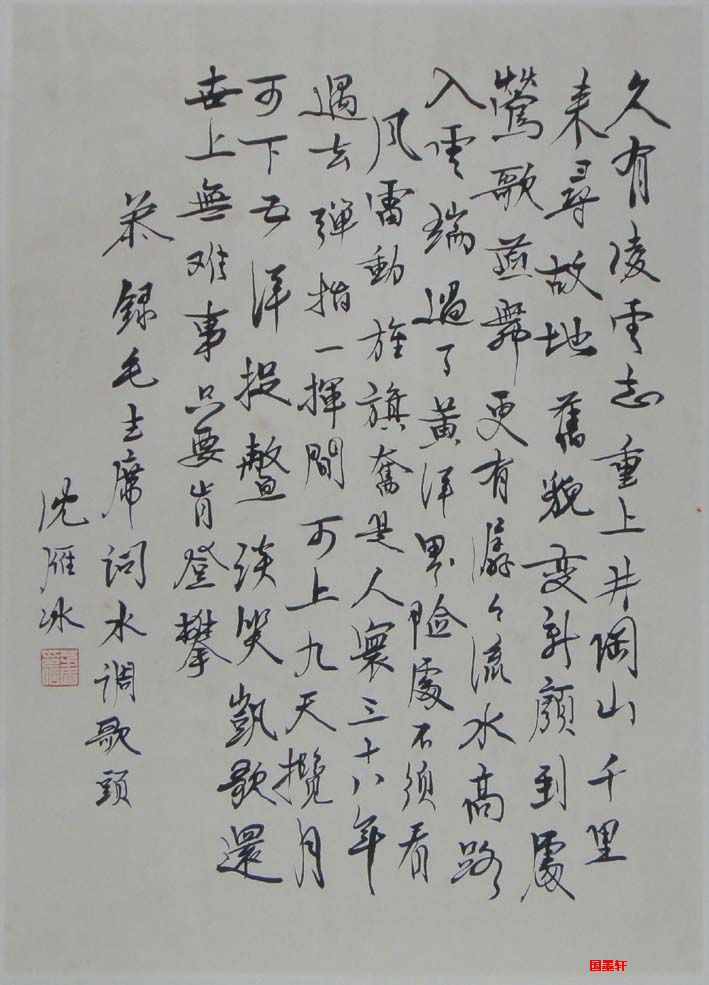 久有凌雲志重上井岡山千里
来尋故地舊貌变新顔到處
鶯歌燕舞更有潺々流水高路
入雲端過了黄洋界险處不須看
风雷動旌旗奮是人寰三十八年
過去彈指一揮間可上九天攬月
可下五洋捉鳖谈笑凱歌還
世上無难事只要肯登攀
恭録毛主席词水调歌頭
沈雁冰
国墨轩